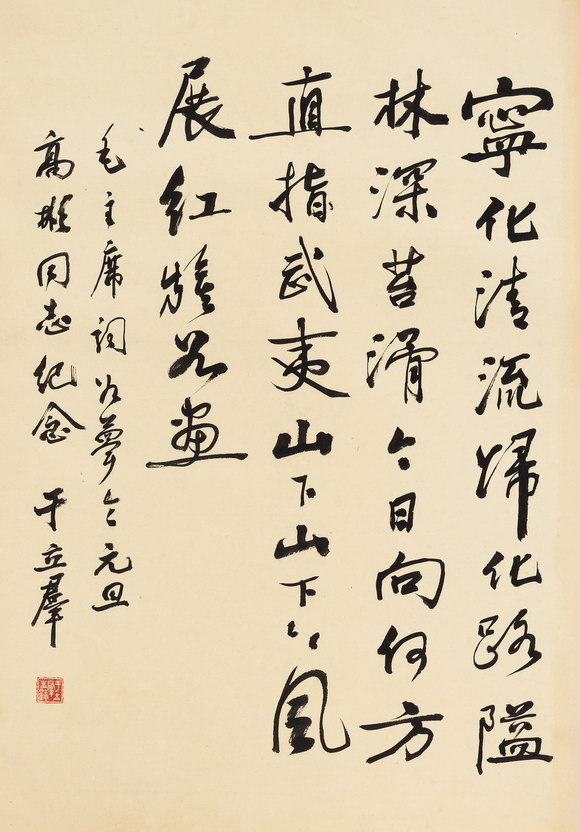 寧化清流歸化路隘
林深苔滑今日向何方
直指武夷山下山下〻〻風
展紅旗如畫
毛主席詞如夢令元旦
高雄同志紀念 于立羣